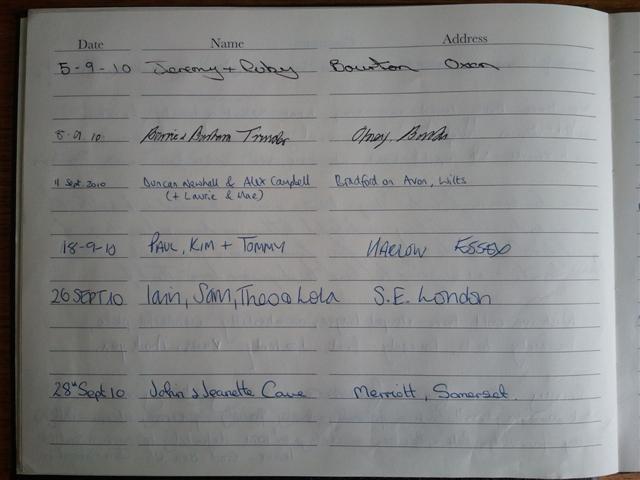 Date Name Address
5-9-10 Jeremy + Ruby Bourton Oxon
8.9.10 Barrie & Barbara
11 Sept 2010 Duncan Newhall & Alex Campbell Bradford on Avon, Wilts
(+ Laurie & Mae)
18-9-10 PAUL, KIM + TOMMY HARLOW ESSEX
26 SEPT 10 Iain, Sam, Theo & Lola S.E. London
28th Sept 10 John & Jeanette Cave Merriott, Somerset.